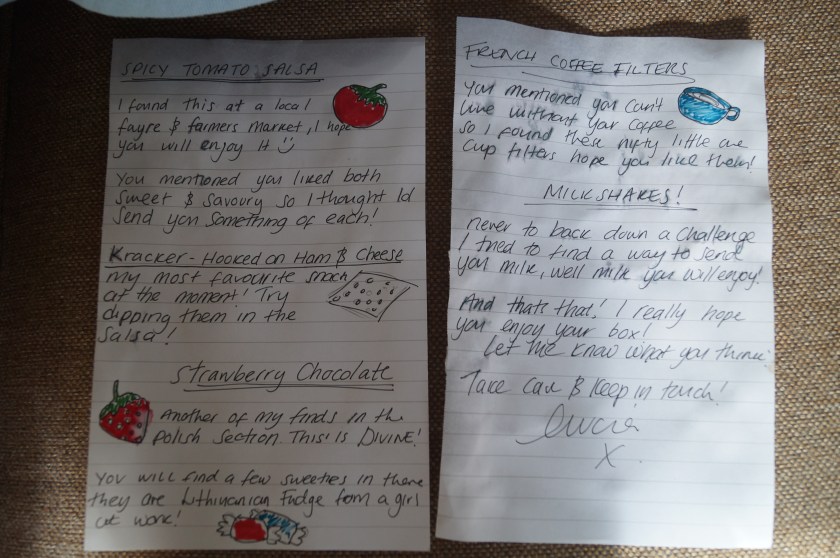 SPICY TOMATO SALSA
I found this at a local
fayre & farmers market, I hope
you will enjoy it
You mentioned you liked both
sweet & savoury so I thought Id
send you something of each!
Kracker - Hooked on Ham & Cheese
my most favourite snack
at the moment! Try
dipping them in the
salsa!
Strawberry Chocolate
Another of my finds in the
Polish section. This is DIVINE!
You will find a few sweeties in there
they are Lithuanian Fudge from a girl
at work!
FRENCH COFFEE FILTERS
You mentioned you can't
live without your coffee
so I found these nifty little one
cup filters hope you like them!
MILKSHAKES!
never to back down a challenge
I tried to find a way to send
you milk, well milk you will enjoy!
And thats that! I really hope
you enjoy your box!
Let me know what you think
Take care & Keep in touch!
X